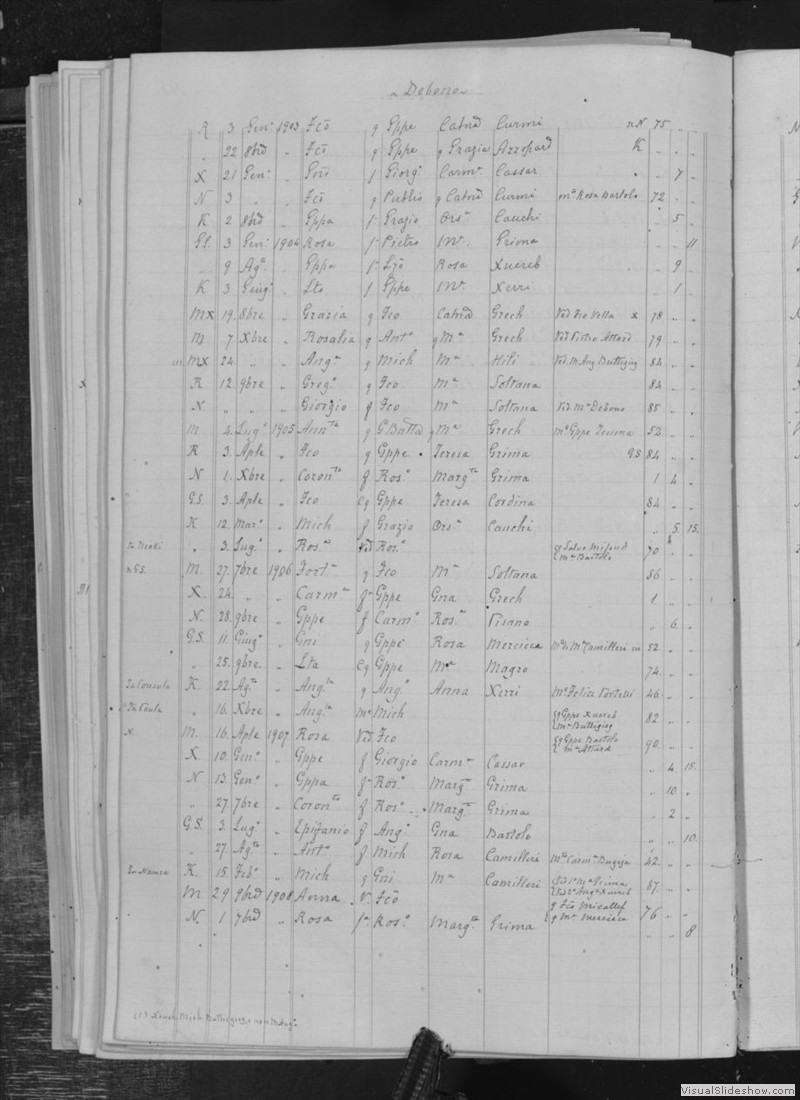 „ Debono „
R 3 Gen° 1903 Fcō q Gppe Catnā Curmi nN 75 „
„ 22 8brē „ Fcō q Gppe q Grazia Azzopard K „ „
X 21 Gen° „ Gni f Giorg° Carmª Cassar „ 7 „
N 3 „ „ Fcō q Publio q Catnā Curmi mª Rosa Bartolo 72 „
K 2 8brē „ Gppa fª Grazio Orsª Cauchi „ 5 „
GS. 3 Gen° 1904 Rosa fª Pietro Mª Grima „ „ 11
„ 9 Ag° „ Gppa fª Rosa Xuereb „ 9
K 3 Giug° „ f Gppe Mª Xerri „ 1 „
MX 19. 8bre „ Grazia q Fco Catnā Grech Vid Vella x 78 „
M 7 Xbre „ Rosalia q Antº q Mª Grech Vid Pietro Attard 79 „
MX 24. „ „ Angª q Mich Mª Hili Vid. M. Ang Buttigieg 84 „
R 12 9bre „ Greg° q Fco Mª Soltana 84 „
N. „ „ „ Giorgio f Fco Mª Soltana Vid. Mª Debono 85 „
M. 4. Lug° 1905 Annᵗᵃ q G.Batta q Mª Grech mª Gppe 52 „
R 3. Aple „ Fco q Gppe Teresa Grima G.S 84 „
N 1. Xbre „ Coronᵗᵃ f Ros° Margᵗᵃ Grima 1 4 „
G.S. 3. Aple „ Fco Cq Gppe Teresa Cordina 84 „
K 12. Mar° „ Mich f Grazio Orsª Cauchi „ 5. 15.
„ 3. Lug° „ Rosª Vid Ros° q Salvo Mifsud q Mª Bartolo 70 „
n GS. M. 27. 7bre 1906 Fortª q Fco Mª Soltana 86 „
X 24. „ „ Carmª fª Gppe Gna Grech 1. „
N. 28. 9bre „ Gppe f Carm° Rosª Pisano „ 6.
G.S. 11. Giug° „ Gni q Gppe Rosa Mercieca Camilleri 52 „
„ 25. 9bre „ Cq Gppe Mª Magro 74. „
K. 22 Agᵗᵒ „ Angᵗᵃ q Ang° Anna Xerri Mª Felice Portelli 46 „
„ 16. Xbre „ Angᵗᵃ mª Mich q Gppe Xuereb q Mª Buttigieg 82 „
N. M. 16. Aple 1907 Rosa Vid Fco q Gppe Bartolo q Mª Attard 90. „
X. 10. Gen° „ Gppe f Giorgio Carmª Cassar „ 4. 15.
N 13. Gen° „ Gppa fª Ros° Margᵗᵃ Grima „ 10. „
„ 27. 7bre „ Coronᵗᵃ f Ros° Margᵗᵃ Grima „ 2 „
G.S. 3. Lug° „ Epifanio f Ang° Gna Bartolo „ „ 10.
„ 27. Agᵗᵒ „ Antº f Mich Rosa Camilleri Mª Carmª Bugeja 42. „
K. 15. Feb° „ Mich q Gni Mª Camilleri Vid 1° Mª Grima Vid 2° Angª Xuereb 67. „
M 29 9brē 1908 Anna V. Fcō q Fcō Micallef q Mª Mercieca 76 „
N. 1 7brē „ Rosa fª Ros° Margᵗᵃ Grima „ „ 8
VisualSlideshow.com